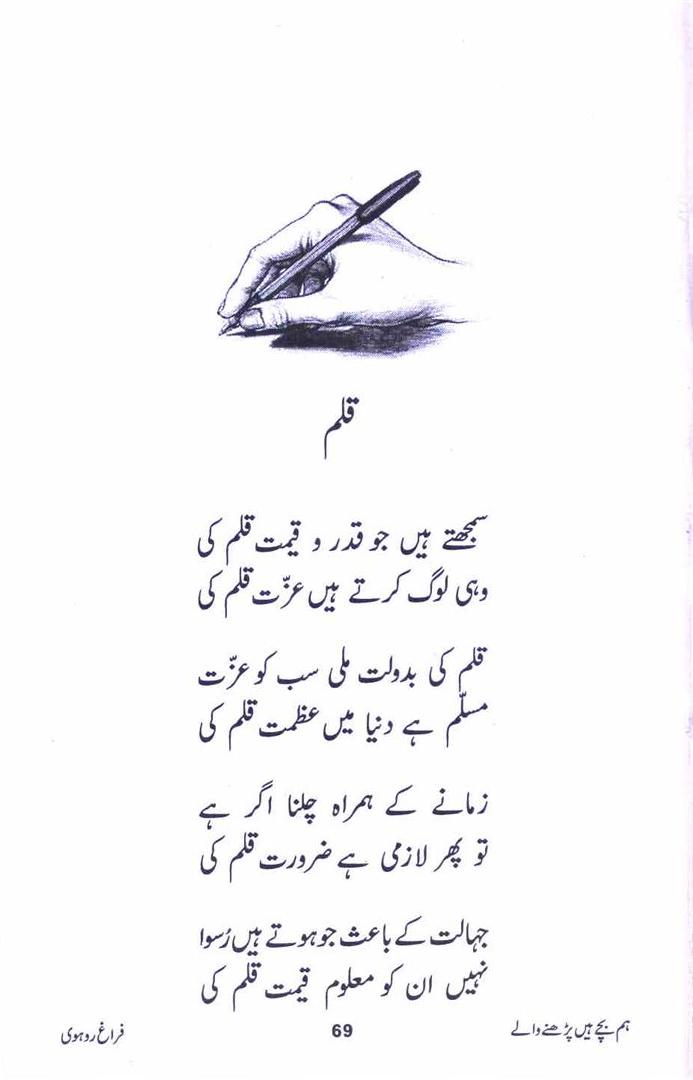 قلم
سمجھتے ہیں جو قدر و قیمت قلم کی
وہی لوگ کرتے ہیں عزّت قلم کی
قلم کی بدولت ملی سب کو عزّت
مسلّم ہے دنیا میں عظمت قلم کی
زمانے کے ہمراہ چلنا اگر ہے
تو پھر لازمی ہے ضرورت قلم کی
جہالت کے باعث جو ہوتے ہیں رُسوا
نہیں ان کو معلوم قیمت قلم کی
ہم بچے ہیں پڑھنے والے
69
فراغ روہوی